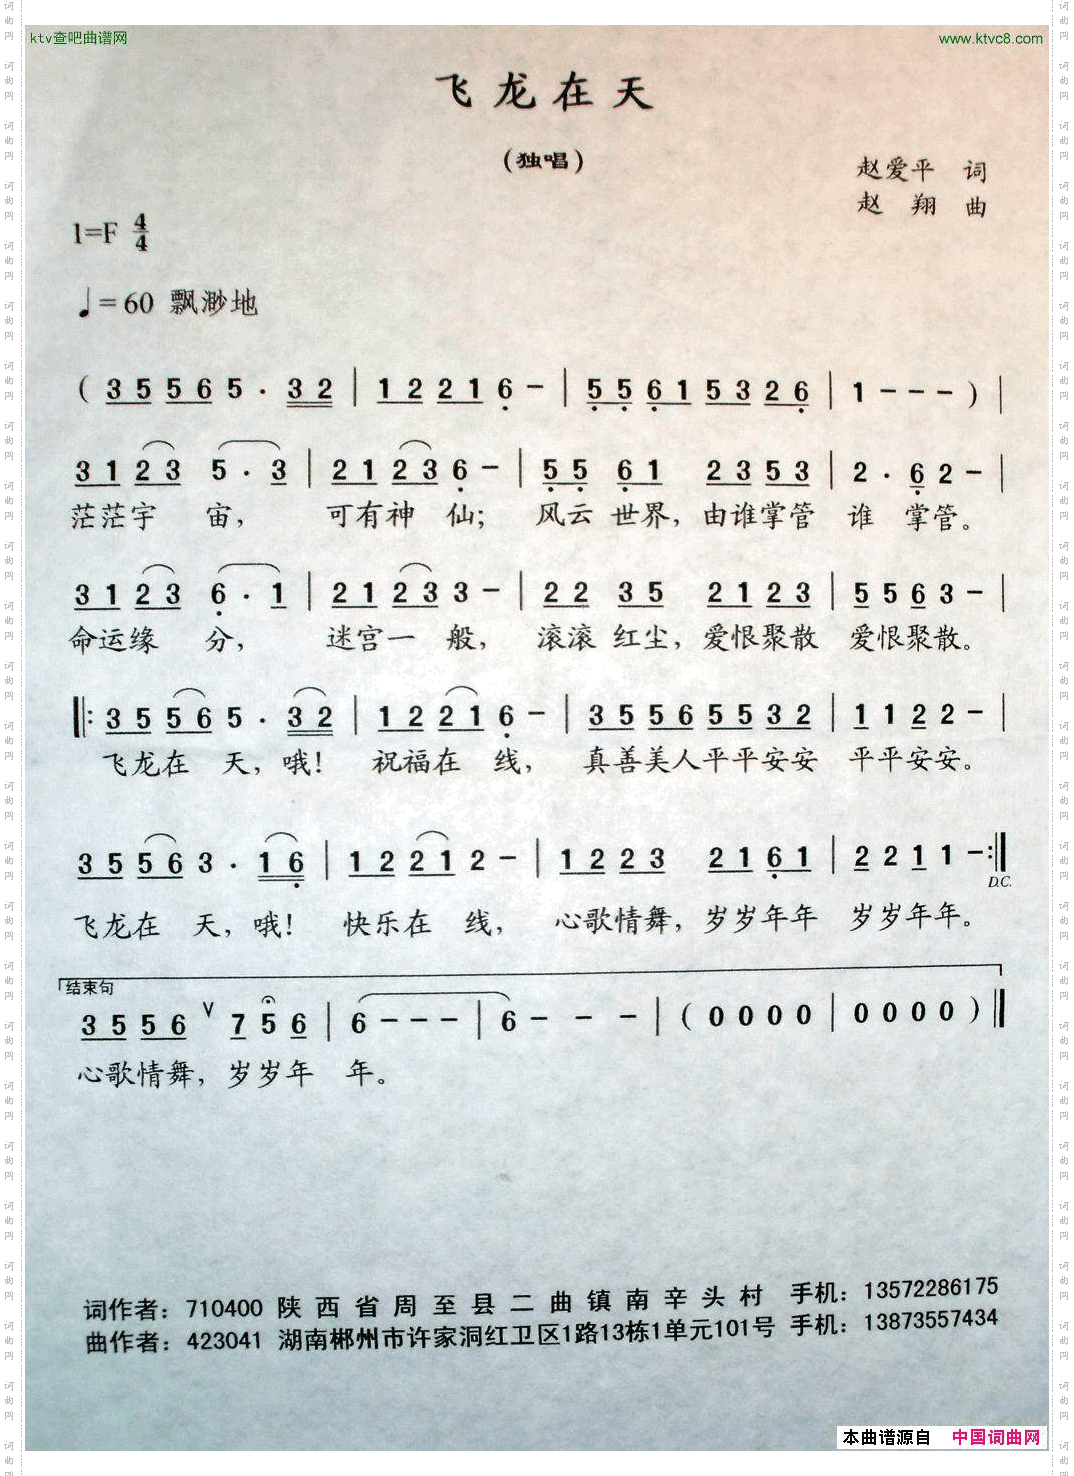 ktv查吧曲谱网 www.ktvc8.com
飞龙在天
(独唱)
赵爱平 词
赵 翔 曲
1=F 4/4
♩=60 飘渺地
( 3 5 5 6 5 · 3 2 | 1 2 2 1 6 － | 5 5 6 1 5 3 2 6 | 1 － － － ) |
3 1 2 3 5 · 3 | 2 1 2 3 6 － | 5 5 6 1 2 3 5 3 | 2 · 6 2 － |
茫茫宇 宙， 可有神 仙； 风云 世界，由谁掌管 谁 掌管。
3 1 2 3 6 · 1 | 2 1 2 3 3 － | 2 2 3 5 2 1 2 3 | 5 5 6 3 － |
命运缘 分， 迷宫一 般， 滚滚 红尘，爱恨聚散 爱恨聚散。
‖: 3 5 5 6 5 · 3 2 | 1 2 2 1 6 － | 3 5 5 6 5 5 3 2 | 1 1 2 2 － |
飞龙在 天，哦！ 祝福在 线， 真善美人平平安安 平平安安。
3 5 5 6 3 · 1 6 | 1 2 2 1 2 － | 1 2 2 3 2 1 6 1 | 2 2 1 1 － :‖
D.C.
飞龙在 天，哦！ 快乐在 线， 心歌情舞，岁岁年年 岁岁年年。
结束句
3 5 5 6 ∨ 7 5 6 | 6 － － － | 6 － － － | ( 0 0 0 0 | 0 0 0 0 ) ‖
心歌情舞，岁岁年 年。
词作者：710400 陕西省周至县二曲镇南辛头村 手机：13572286175
曲作者：423041 湖南郴州市许家洞红卫区1路13栋1单元101号 手机：13873557434
本曲谱源自 中国词曲网